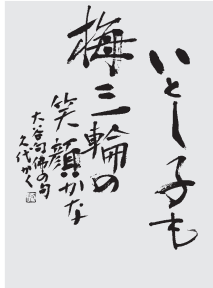 いとし子も
梅三輪の
笑顔かな
大谷句佛の句
久代かく